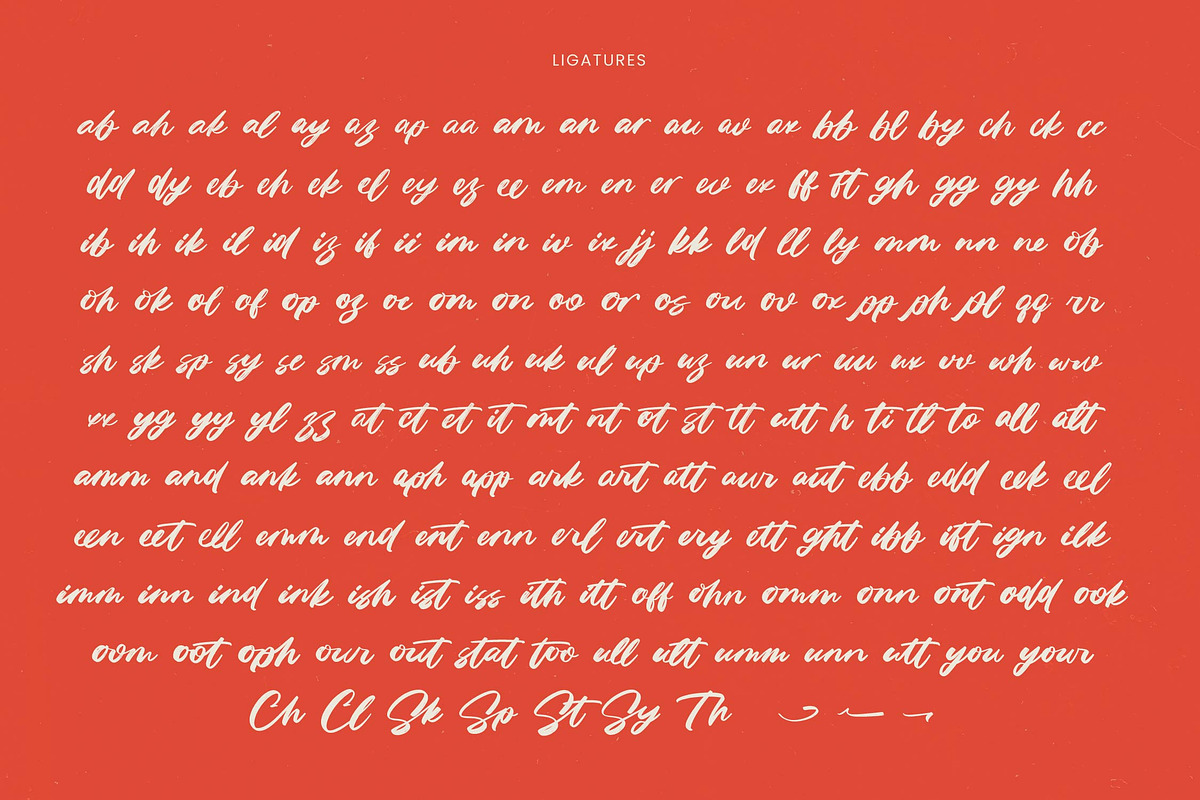 LIGATURES
ab ah ak al ay az ap aa am an ar au av ax bb bl by ch ck cc
dd dy eb eh ek el ey ez ee em en er ev ex ff ft gh gg gy hh
ib ih ik il id iz if ii im in iv ix jj kk ld ll ly mm nn ne ob
oh ok ol of op oz oe om on oo or os ou ov ox pp ph pl qq rr
sh sk sp sy se sm ss ub uh uk ul up uz un ur uu ux vv wh ww
xx yg yy yl zz at ct et it mt nt ot st tt utt h ti tl to all alt
amm and ank ann aph app ark art att aur aut ebb edd eek eel
een eet ell emm end ent enn erl ert ery ett ght ibb ift ign ilk
imm inn ind ink ish ist iss ith itt off ohn omm onn ont odd ook
oom oot oph our out stat too ull ult umm unn utt you your
Ch Cl Sk Sp St Sy Th